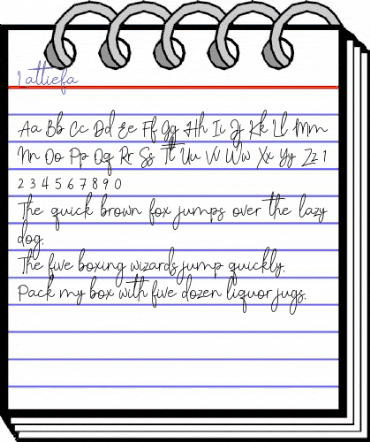 Lattiefa
Aa Bb Cc Dd Ee Ff Gg Hh Ii Jj Kk Ll Mm
Nn Oo Pp Qq Rr Ss Tt Uu Vv Ww Xx Yy Zz 1
2 3 4 5 6 7 8 9 0
The quick brown fox jumps over the lazy
dog.
The five boxing wizards jump quickly.
Pack my box with five dozen liquor jugs.